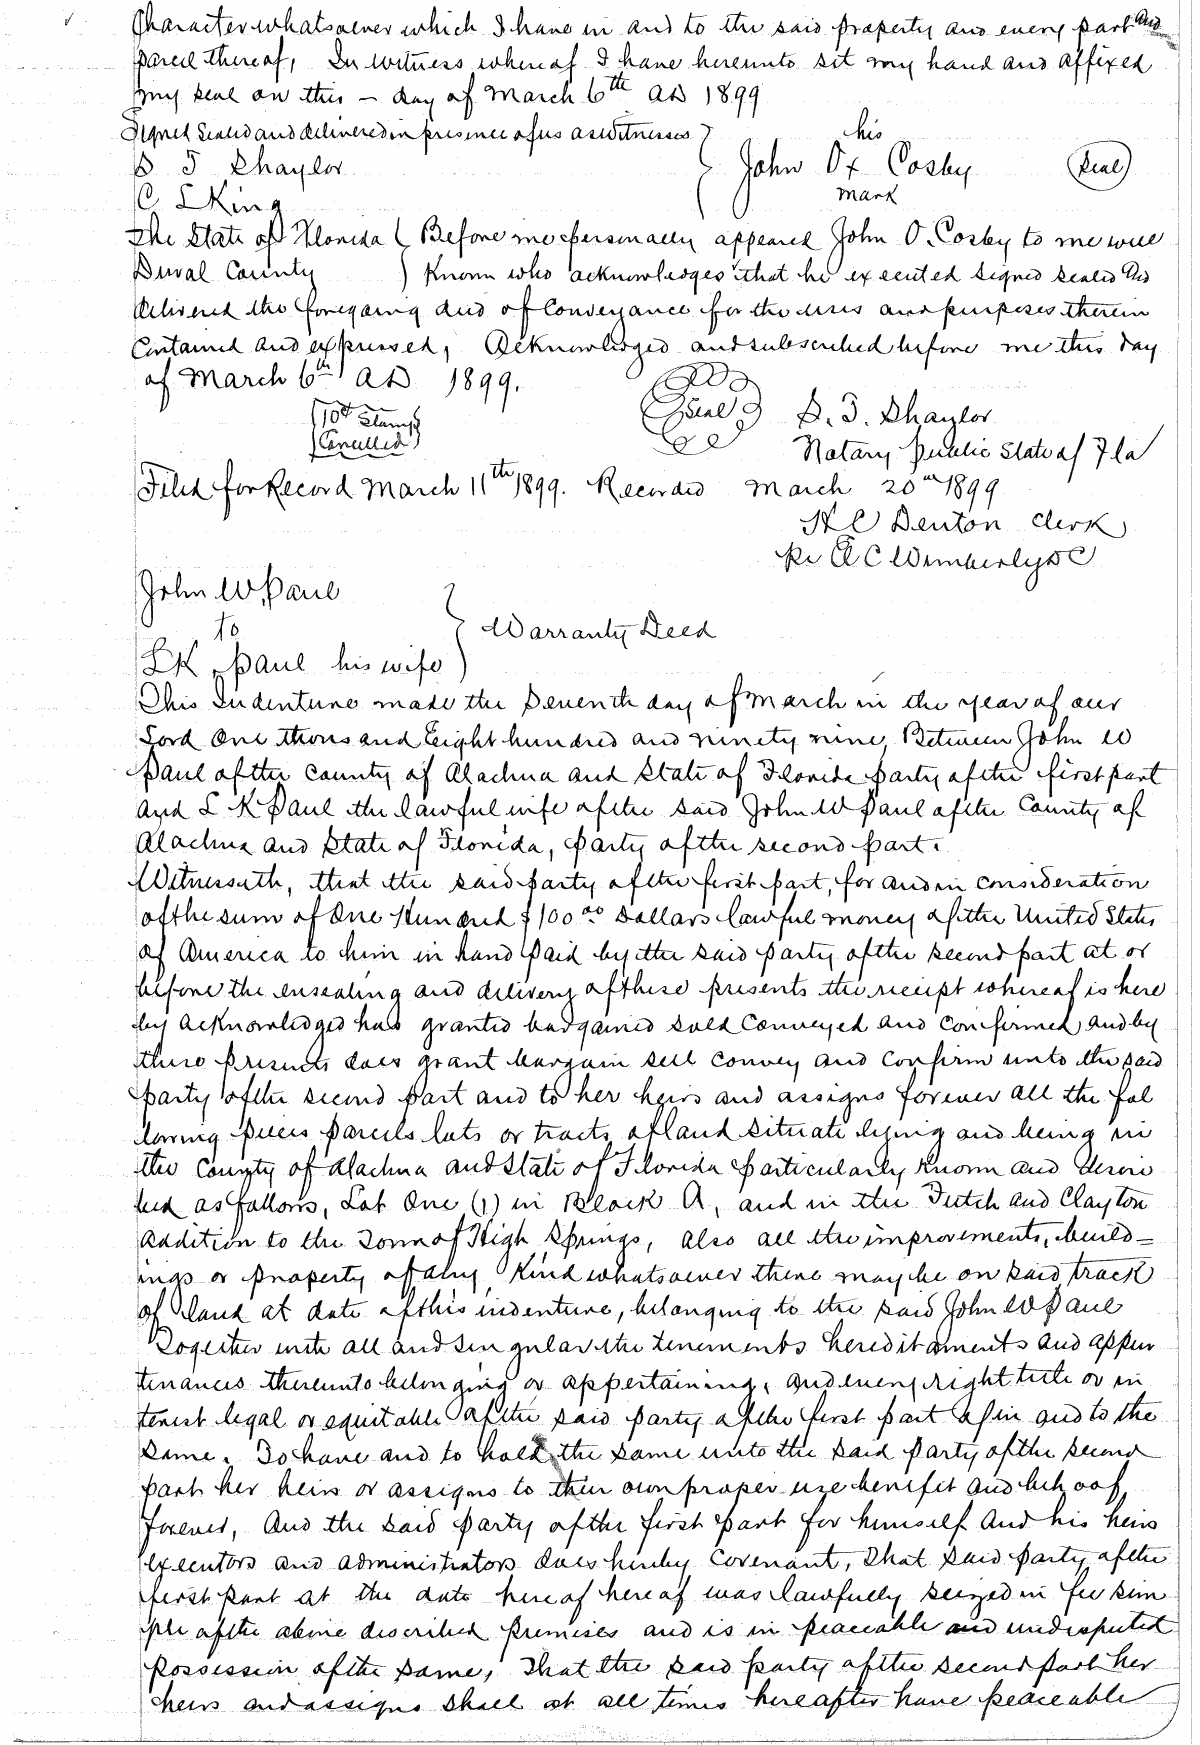 Character whatsoever which I have in and to the said property and every part and
parcel thereof, In witness whereof I have hereunto sit my hand and affixed
my seal on this – day of March 6th AD 1899
Signed Sealed and delivered in presence of us as witnesses
his
D T Shaylor
John O x Cosby
Seal
C L King
mark
The State of Florida ( Before me personally appeared John O. Cosby to me well
Duval County ) known who acknowledges that he executed signed sealed and
delivered the foregoing deed of Conveyance for the uses and purposes therein
Contained and expressed, Acknowledged and subscribed before me this day
of March 6th AD 1899.
10¢ Stamps
Cancelled
Seal
D. T. Shaylor
Notary Public State of Fla
Filed for Record March 11th 1899. Recorded March 20th 1899
H C Denton Clerk
Per A C Wimberly D C
John W. Paul
to
Warranty Deed
L K Paul his wife
This Indenture made the Seventh day of March in the year of our
Lord One thousand Eight hundred and ninety nine, Between John W
Paul of the County of Alachua and State of Florida party of the first part
and L K Paul the lawful wife of the said John W Paul of the County of
Alachua and State of Florida, party of the second part.
Witnesseth, that the said party of the first part, for and in consideration
of the sum of One Hundred $100 00 Dollars lawful money of the United States
of America to him in hand paid by the said party of the second part at or
before the ensealing and delivery of these presents the receipt whereof is here
by acknowledged has granted bargained sold Conveyed and Confirmed and by
these presents does grant bargain sell convey and confirm unto the said
party of the second part and to her heirs and assigns forever all the fol
lowing pieces parcels lots or tracts of land situate lying and being in
the County of Alachua and State of Florida particularly known and descri
bed as follows, Lot One (1) in Block A, and in the Futch and Clayton
addition to the Town of High Springs, also all the improvements, build–
ings or property of any kind whatsoever there may be on said track
of land at date of this indenture, belonging to the said John W Paul
Together with all and singular the tenements hereditaments and appur
tenances thereunto belonging or appertaining, and every right title or in
terest legal or equitable of the said party of the first part of in and to the
same. To have and to hold the same unto the said party of the second
part her heirs or assigns to their own proper use benefit and behoof
forever, And the said party of the first part for himself And his heirs
executors and administrators does hereby Covenant, That said party of the
first part at the date hereof hereof was lawfully seized in fee sim
ple of the above described premises and is in peaceable and undisputed
possession of the same, That the said party of the second part her
heirs and assigns shall at all times hereafter have peaceable